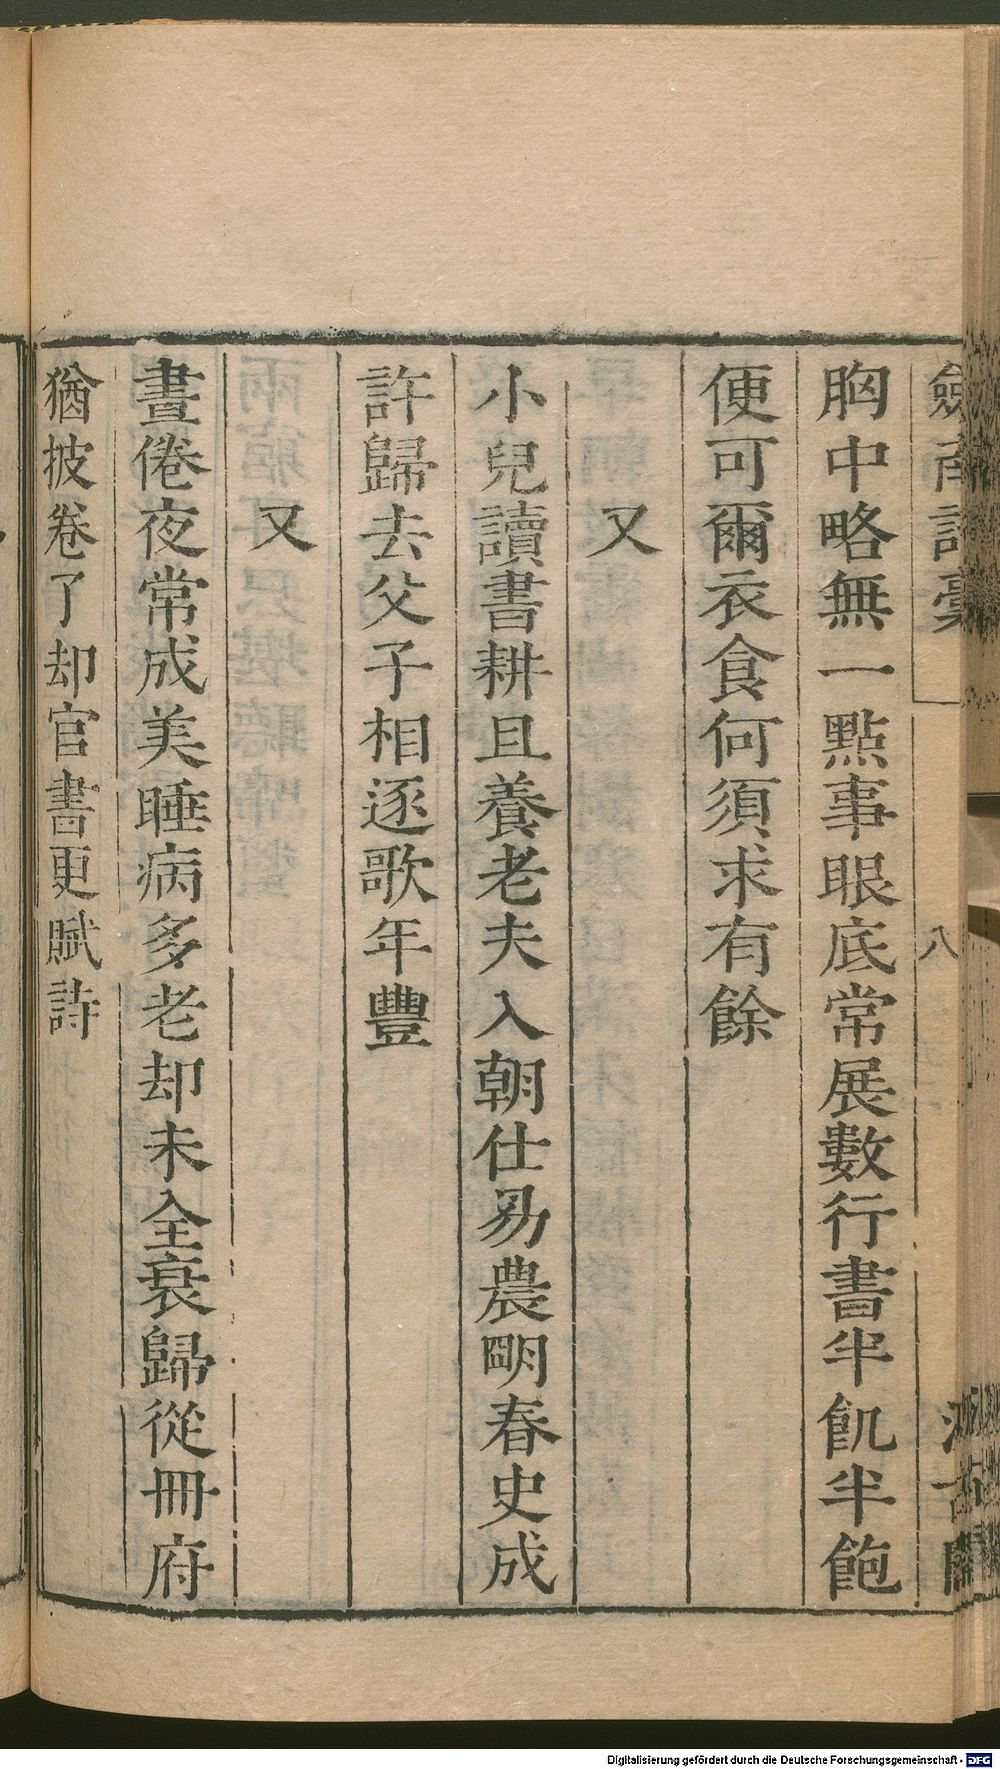 劒南詩稾
八
汲古閣
胸中略無一點事眼底常展數行書半飢半飽
便可爾衣食何須求有餘
又
小兒讀書耕且養老夫入朝仕易農明春史成
許歸去父子相逐歌年豐
又
晝倦夜常成美睡病多老却未全衰歸從冊府
猶披卷了却官書更賦詩
Digitalisierung gefördert durch die Deutsche Forschungsgemeinschaft - DFG